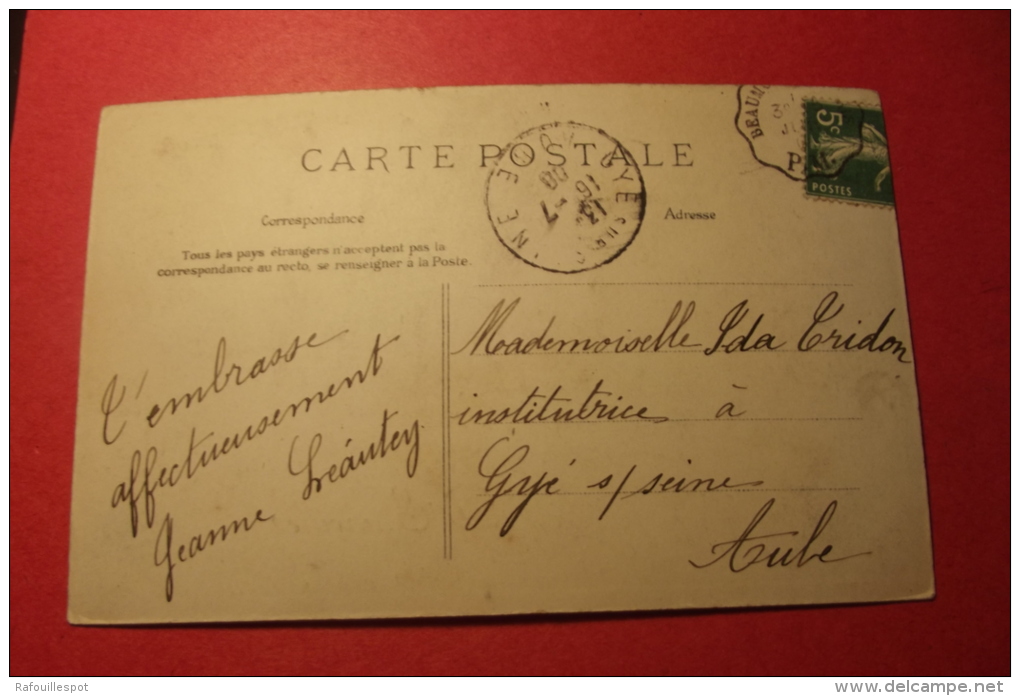 CARTE POSTALE
Correspondance
Adresse
Tous les pays étrangers n'acceptent pas la
correspondance au recto, se renseigner à la Poste.
T'embrasse
affectueusement
Jeanne Léautey
Mademoiselle Ida Tridon
institutrice à
Gyé s/seine
Aube
5c
POSTES
GYÉ SUR
Rafouillespot
www.delcampe.net